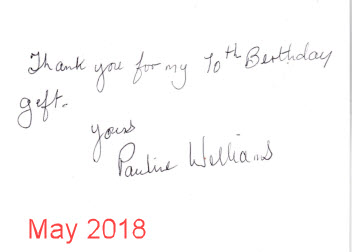 Thank you for my 70th Berthday
geft.
yours
Pauline Williams
May 2018